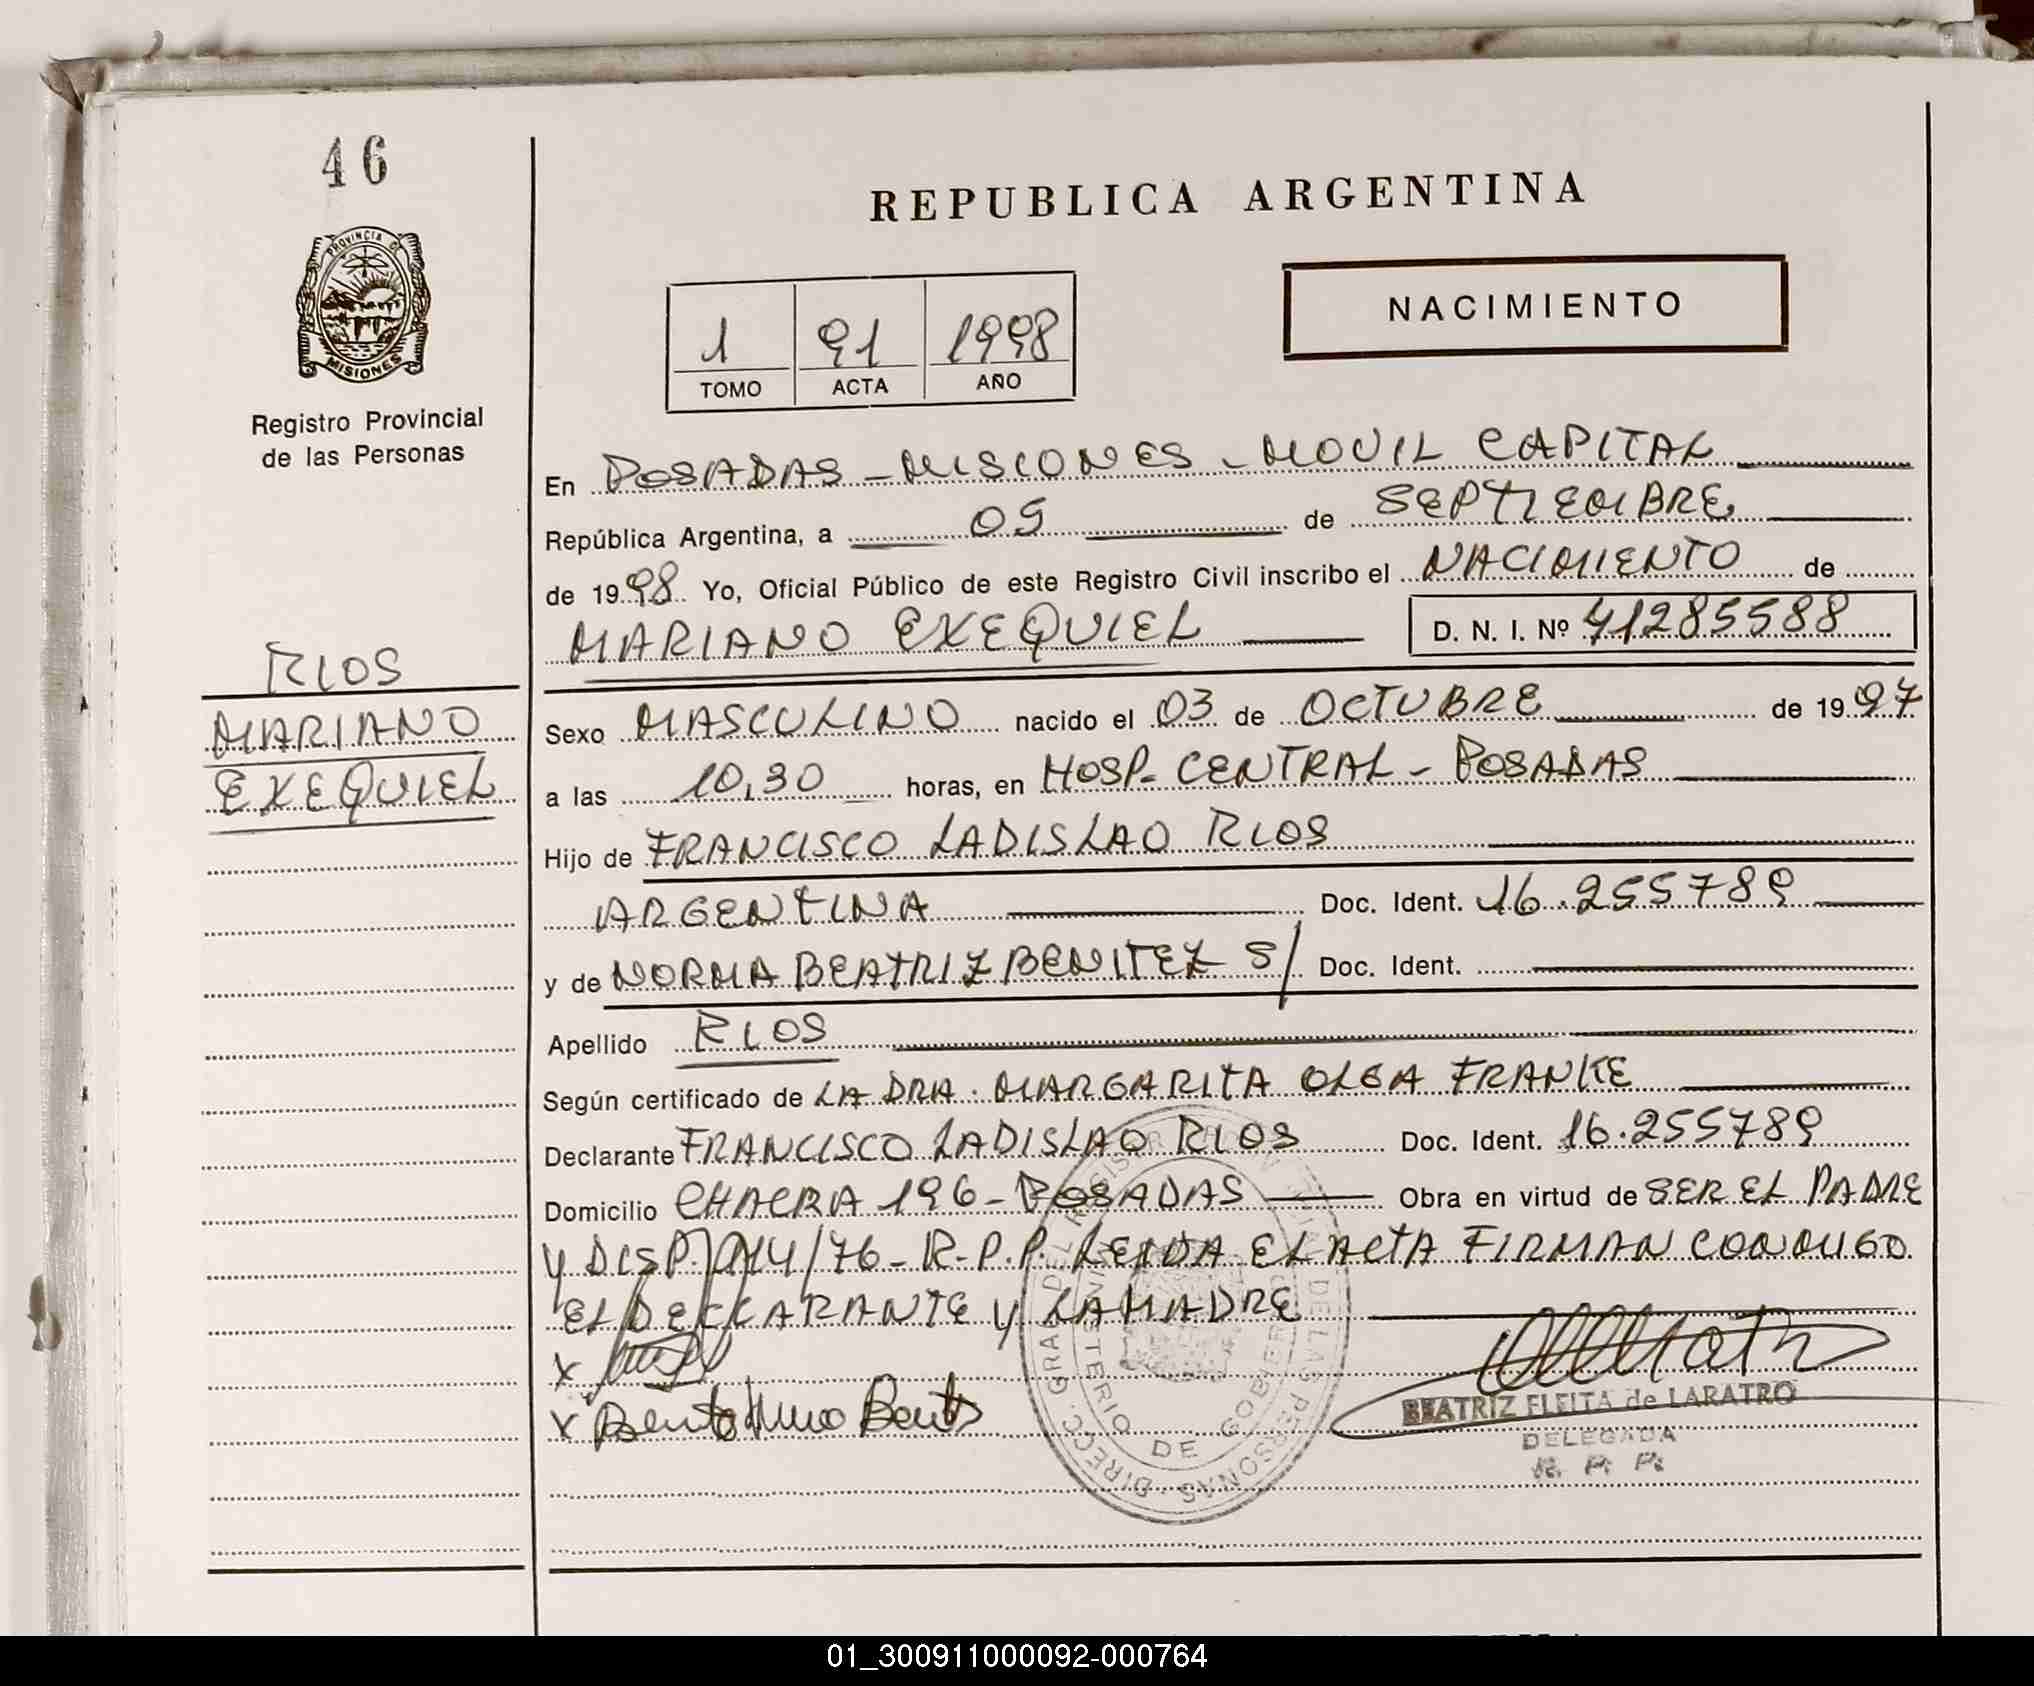 46
REPUBLICA ARGENTINA
PROVINCIA D
MISIONES
NACIMIENTO
1 91 1998
TOMO ACTA AÑO
Registro Provincial
de las Personas
En POSADAS - MISIONES - MOVIL CAPITAL
República Argentina, a 09 de SEPTIEMBRE
de 1998 Yo, Oficial Público de este Registro Civil inscribo el NACIMIENTO de
MARIANO EXEQUIEL D. N. I. Nº 41285588
RIOS
MARIANO
EXEQUIEL
Sexo MASCULINO nacido el 03 de OCTUBRE de 1997
a las 10,30 horas, en HOSP. CENTRAL - POSADAS
Hijo de FRANCISCO LADISLAO RIOS
ARGENTINA Doc. Ident. 16.255789
y de NORMA BEATRIZ BENITEZ S/ Doc. Ident.
Apellido RIOS
Según certificado de LA DRA. MARGARITA OLGA FRANKE
Declarante FRANCISCO LADISLAO RIOS Doc. Ident. 16.255789
Domicilio CHACRA 196 - POSADAS Obra en virtud de SER EL PADRE
Y DISP. 014/76 - R.P.P. LEIDA EL ACTA FIRMAN CONMIGO
EL DECLARANTE Y LA MADRE
X
X
DIRECC. GRAL DEL REGISTRO PROVINCIAL DE LAS PERSONAS
MINISTERIO DE GOBIERNO
BEATRIZ FLEITA de LARATRO
DELEGADA
R. P. P.
01_300911000092-000764